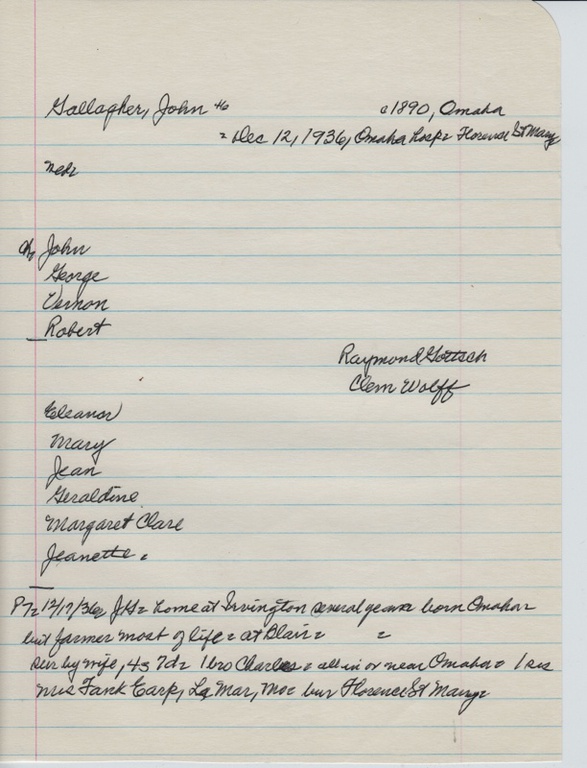 Gallagher, John 46 c1890, Omaha
= Dec 12, 1936, Omaha hosp= Florence St Mary
Neb=
Ch John
George
Vernon
Robert
Raymond Gottsch
Clem Wolff
Eleanor
Mary
Jean
Geraldine
Margaret Clare
Jeanette =
PT= 12/17/36= JG= home at Irvington several years= born Omaha=
but farmer most of life= at Blair= =
sur by wife, 4s 7d= 1 bro Charles= all in or near Omaha= 1 sis
Mrs Fank Earp, La Mar, Mo= bur Florence St Mary=